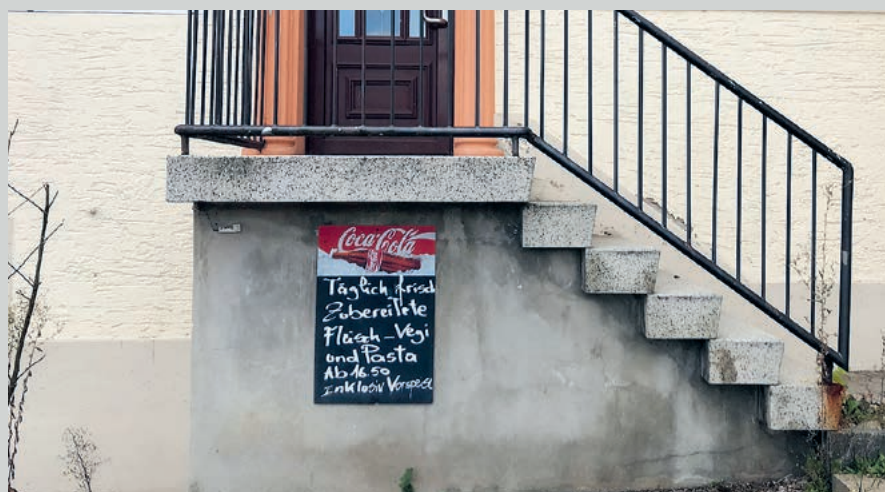 Coca-Cola
Täglich frisch
Zubereitete
Fleisch-Vegi
und Pasta
Ab 16.50
Inklusiv Vorspeise